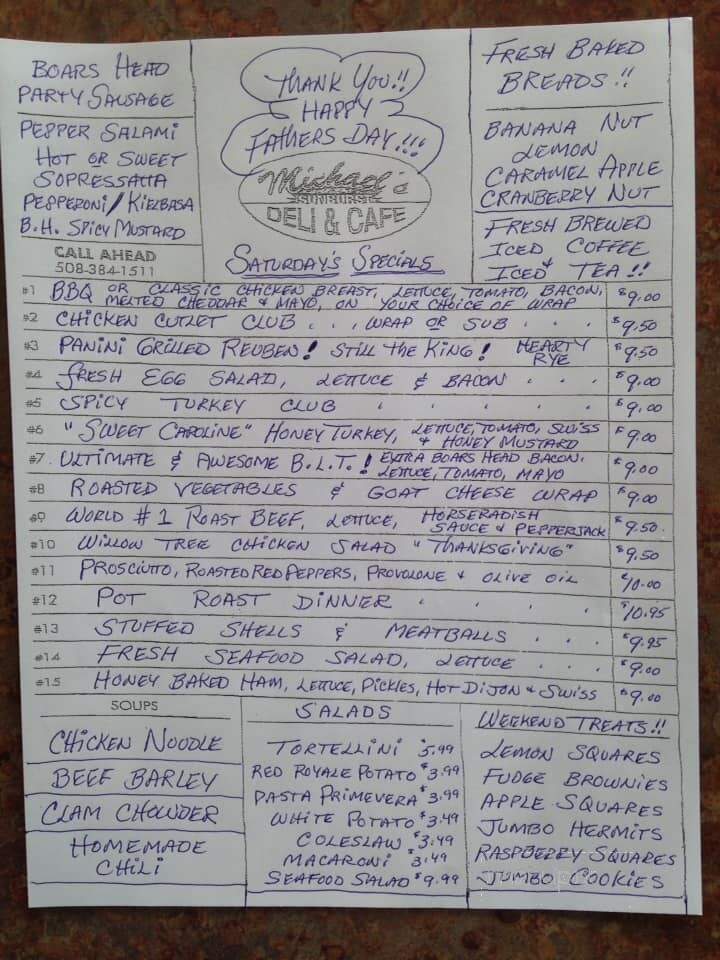 BOARS HEAD
PARTY SAUSAGE
PEPPER SALAMI
HOT OR SWEET
SOPRESSATTA
PEPPERONI / KIELBASA
B.H. SPICY MUSTARD
CALL AHEAD
508-384-1511
THANK YOU!!
HAPPY
FATHERS DAY!!!
Michael's
DELI & CAFE
SATURDAY'S SPECIALS
FRESH BAKED
BREADS!!
BANANA NUT
LEMON
CARAMEL APPLE
CRANBERRY NUT
FRESH BREWED
ICED COFFEE
&
ICED TEA!!
#1 BBQ OR CLASSIC CHICKEN BREAST, LETTUCE, TOMATO, BACON, $9.00
MELTED CHEDDAR & MAYO, ON YOUR CHOICE OF WRAP
#2 CHICKEN CUTLET CLUB . . . WRAP OR SUB . . . $9.50
#3 PANINI GRILLED REUBEN! STILL THE KING! HEARTY RYE $9.50
#4 FRESH EGG SALAD, LETTUCE & BACON . . . $9.00
#5 SPICY TURKEY CLUB . . . . . $9.00
#6 "SWEET CAROLINE" HONEY TURKEY, LETTUCE, TOMATO, SWISS & HONEY MUSTARD $9.00
#7 ULTIMATE & AWESOME B.L.T.! EXTRA BOARS HEAD BACON, LETTUCE, TOMATO, MAYO $9.00
#8 ROASTED VEGETABLES & GOAT CHEESE WRAP $9.00
#9 WORLD #1 ROAST BEEF, LETTUCE, HORSERADISH SAUCE & PEPPERJACK $9.50
#10 WILLOW TREE CHICKEN SALAD "THANKSGIVING" $9.50
#11 PROSCIUTTO, ROASTED RED PEPPERS, PROVOLONE & OLIVE OIL $10.00
#12 POT ROAST DINNER . . . . $10.95
#13 STUFFED SHELLS & MEATBALLS . . . $9.95
#14 FRESH SEAFOOD SALAD, LETTUCE . . . $9.00
#15 HONEY BAKED HAM, LETTUCE, PICKLES, HOT DIJON & SWISS $9.00
SOUPS
CHICKEN NOODLE
BEEF BARLEY
CLAM CHOWDER
HOMEMADE
CHILI
SALADS
TORTELLINI $5.99
RED ROYALE POTATO $3.99
PASTA PRIMEVERA $3.99
WHITE POTATO $3.49
COLESLAW $3.49
MACARONI $3.49
SEAFOOD SALAD $9.99
WEEKEND TREATS!!
LEMON SQUARES
FUDGE BROWNIES
APPLE SQUARES
JUMBO HERMITS
RASPBERRY SQUARES
JUMBO COOKIES